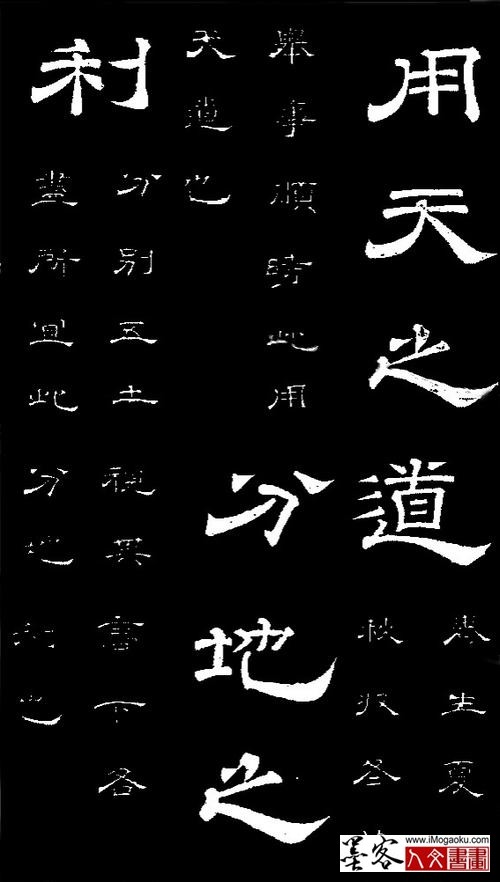 用天之道
春生夏
秋收冬
舉事順時此用
天道也
分地之
利
分別五土視其高下各
盡所宜此分地利也
墨客
www.iMogaoku.com
人文書畫